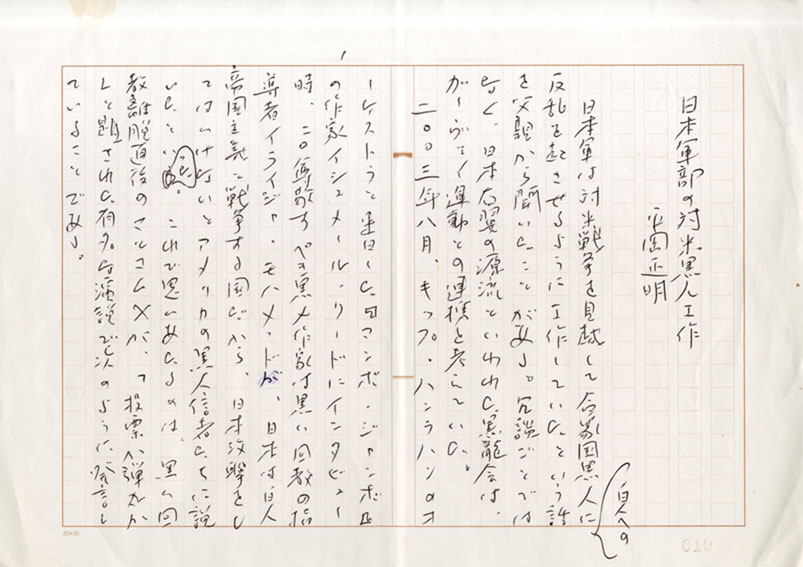 日本軍部の対米黒人工作
平岡正明
日本軍は対米戦争を見越して合衆国黒人に
白人への
反乱を起させるように工作していたという話
を父親から聞いたことがある。冗談ごとでは
なく、日本右翼の源流といわれた黒龍会は、
ガーヴェイ運動との連携を考えていた。
二〇〇三年八月、キップ・ハンラハンのオ
ーケストラと来日した『マンボ・ジャンボ』
の作家イシュメール・リードにインタビュー
時、この尊敬すべき黒人作家は黒い回教の指
導者イライジャ・モハメッドが、日本は白人
帝国主義と戦争する国だから、日本攻撃をし
てはいけないとアメリカの黒人信者たちに説
いたといった。これで思いあたるのは、黒人回
教離脱直後のマルコムXが、「投票か弾丸か
」と題された有名な演説で次のように発言し
ていることである。
20×20
019